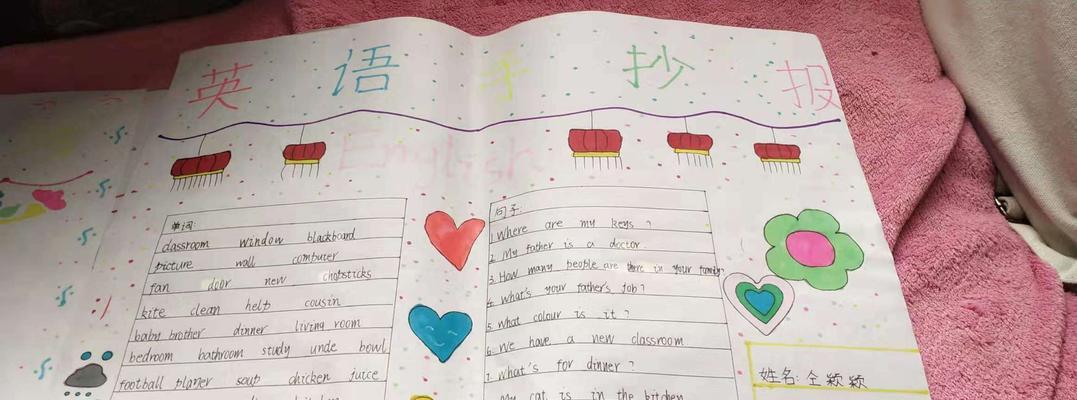 英语手抄报
English
单词:
classroom window blackboard
picture wall computer
fan door new chopsticks
kite clean help cousin
baby brother dinner living room
bedroom bathroom study unde bowl
football player soup chicken juice
句子:
1. Where are my keys?
2. My father is a doctor.
3. How many people are there in your family
4. What's your father's job?
5. What colour is it?
6. We have a new classroom
7. What's for dinner?
My cat is in the kitchen
姓名: 仝颖颖